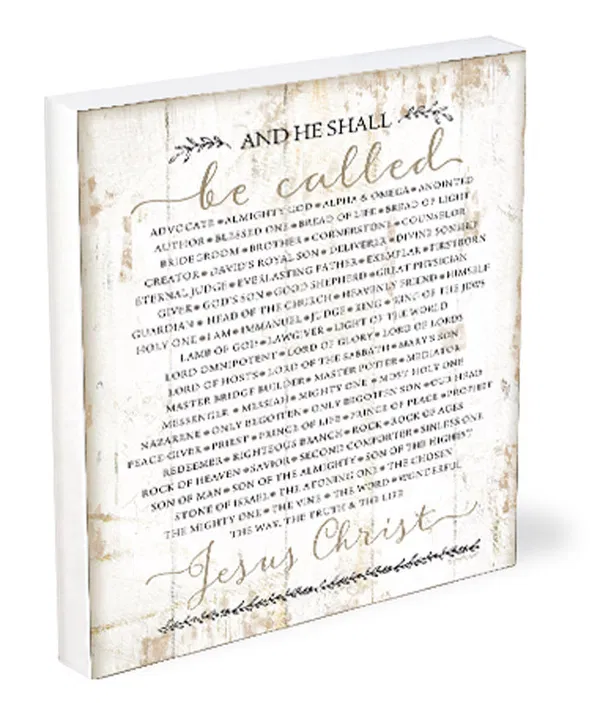 AND HE SHALL
be called
ADVOCATE • ALMIGHTY GOD • ALPHA & OMEGA • ANOINTED
AUTHOR • BLESSED ONE • BREAD OF LIFE • BREAD OF LIGHT
BRIDEGROOM • BROTHER • CORNERSTONE • COUNSELOR
CREATOR • DAVID'S ROYAL SON • DELIVERER • DIVINE
ETERNAL JUDGE • EVERLASTING FATHER • EXEMPLAR • FIRSTBORN
GIVER • GOD'S SON • GOOD SHEPHERD • GREAT PHYSICIAN
GUARDIAN • HEAD OF THE CHURCH • HEAVENLY FRIEND • HIMSELF
HOLY ONE • I AM • IMMANUEL • JUDGE • KING • KING OF THE JEWS
LAMB OF GOD • LAWGIVER • LIGHT OF THE WORLD
LORD OMNIPOTENT • LORD OF GLORY • LORD OF LORDS
LORD OF HOSTS • LORD OF THE SABBATH • MARY'S SON
MASTER BRIDGE BUILDER • MASTER POTTER • MEDIATOR
MESSENGER • MESSIAH • MIGHTY ONE • MOST HOLY ONE
NAZARENE • ONLY BEGOTTEN • ONLY BEGOTTEN SON • OUR HEAD
PEACE-GIVER • PRIEST • PRINCE OF LIFE • PRINCE OF PEACE • PROPHET
REDEEMER • RIGHTEOUS BRANCH • ROCK • ROCK OF AGES
ROCK OF HEAVEN • SAVIOR • SECOND COMFORTER • SINLESS ONE
SON OF MAN • SON OF THE ALMIGHTY • SON OF THE HIGHEST
STONE OF ISRAEL • THE ATONING ONE • THE CHOSEN
THE MIGHTY ONE • THE VINE • THE WORD • WONDERFUL
THE WAY, THE TRUTH & THE LIFE
Jesus Christ